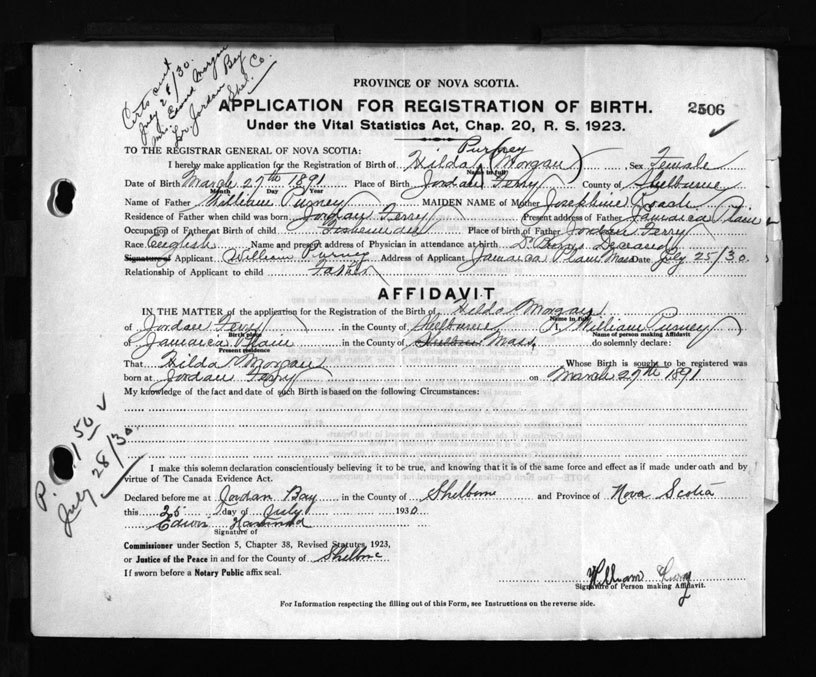 Certs sent
July 28/30.
Mrs. Edward Morgan
Lr. Jordan Bay
Shel. Co.
PROVINCE OF NOVA SCOTIA.
APPLICATION FOR REGISTRATION OF BIRTH. 2506
Under the Vital Statistics Act, Chap. 20, R. S. 1923.
TO THE REGISTRAR GENERAL OF NOVA SCOTIA: Purney
I hereby make application for the Registration of Birth of Hilda (Morgan) Sex Female
Name in full
Date of Birth March 27th 1891 Place of Birth Jordan Ferry County of Shelburne
Month Day Year
Name of Father William Purney MAIDEN NAME of Mother Josephine Roach
Residence of Father when child was born Jordan Ferry Present address of Father Jamaica Plain
Occupation of Father at Birth of child Fisherman Place of birth of Father Jordan Ferry
Race English Name and present address of Physician in attendance at birth Dr. Deceased
Signature of Applicant William Purney Address of Applicant Jamaica Plain Mass Date July 25/30
Relationship of Applicant to child Father
AFFIDAVIT
IN THE MATTER of the application for the Registration of the Birth of Hilda Morgan
Name in full
of Jordan Ferry in the County of Shelburne I, William Purney
Birth place Name of person making Affidavit
of Jamaica Plain in the County of Shelburne Mass. do solemnly declare:
Present residence
That Hilda Morgan Whose Birth is sought to be registered was
born at Jordan Ferry on March 27th 1891
My knowledge of the fact and date of such Birth is based on the following Circumstances:
P. 1.50
July 28/30
I make this solemn declaration conscientiously believing it to be true, and knowing that it is of the same force and effect as if made under oath and by
virtue of The Canada Evidence Act.
Declared before me at Jordan Bay in the County of Shelburne and Province of Nova Scotia
this 25 day of July 1930
Edwin
Signature of
Commissioner under Section 5, Chapter 38, Revised Statutes, 1923,
or Justice of the Peace in and for the County of Shelburne
If sworn before a Notary Public affix seal.
William Purney
Signature of Person making Affidavit.
For Information respecting the filling out of this Form, see Instructions on the reverse side.